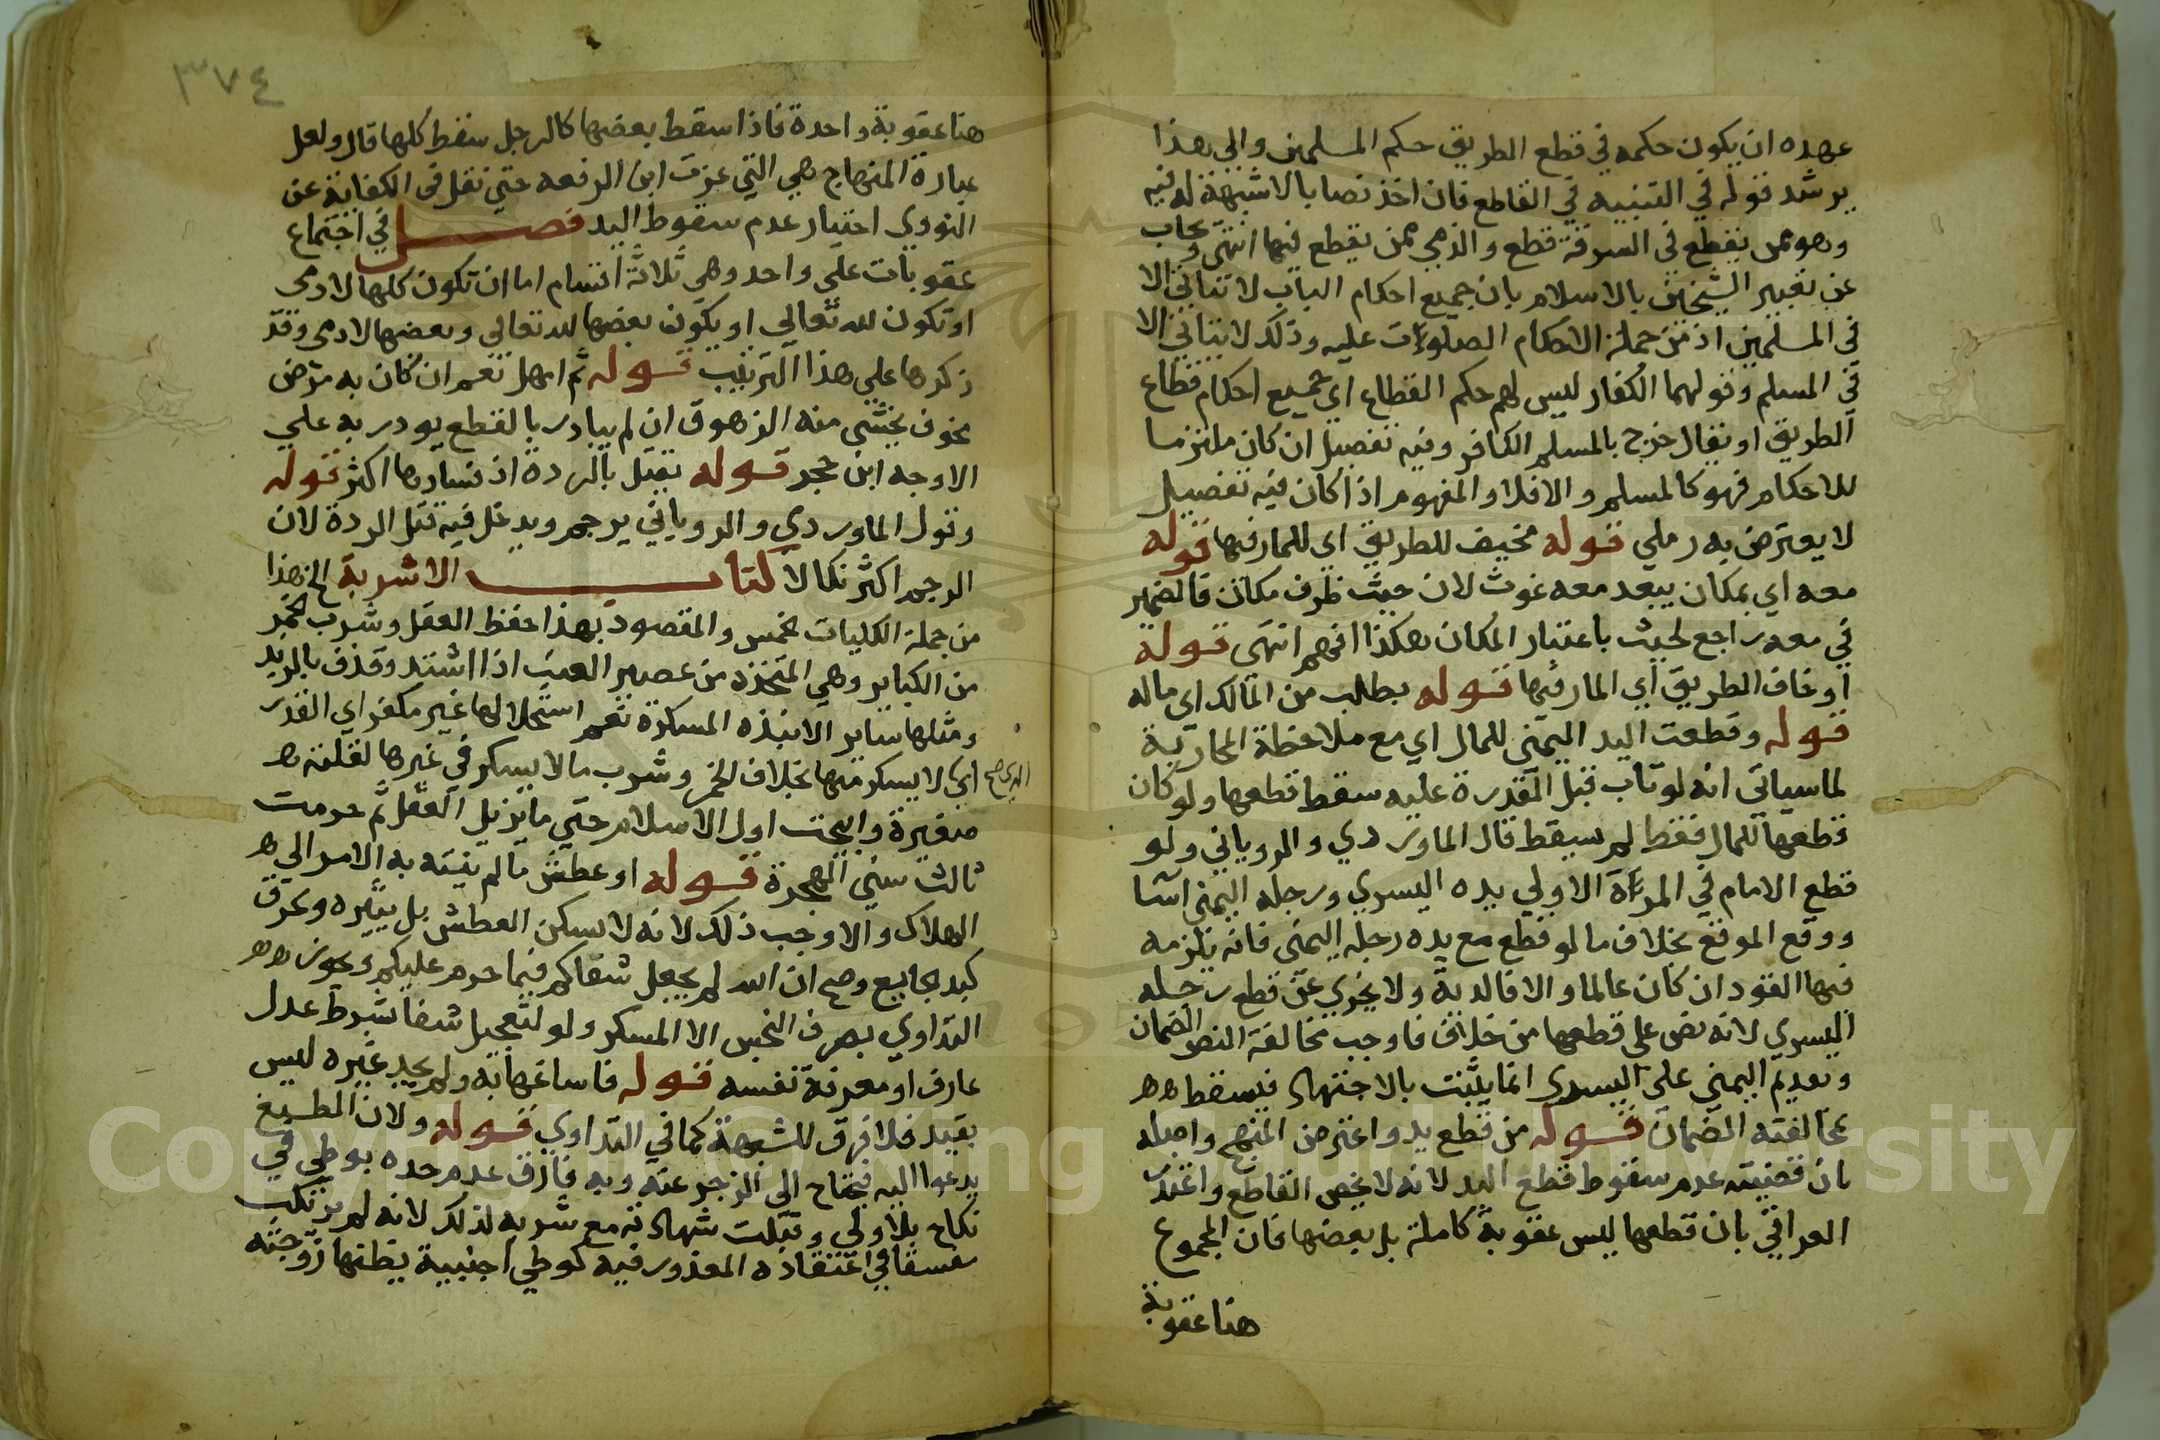 عهده ان يكون حكمه في قطع الطريق حكم المسلمين والي هذا
يرشد قوله في التنبيه في القاطع فان اخذ نصابا لا شبهة له فيه
وهو ممن يقطع في السرقة قطع والذمي ممن يقطع فيها انتهى ويجاب
عن تعبير الشيخين بالاسلام بان جميع احكام الباب لا تتاتى الا
في المسلمين اذ من جملة الاحكام الصلوات عليه وذلك لا يتاتى الا
في المسلم وقولهما الكفار ليس لهم حكم القطاع اي جميع احكام قطاع
الطريق او يقال خرج بالمسلم الكافر وفيه تفصيل ان كان ملتزما
للاحكام فهو كالمسلم والا فلا والمفهوم اذا كان فيه تفصيل
لا يعترض به رملي قوله مخيف للطريق اي للمار فيها قوله
معه اي بمكان يبعد معه غوث لان حيث ظرف مكان فالضمير
في معه راجع لحيث باعتبار المكان هكذا افهم انتهى قوله
او خاف الطريق اي المار فيها قوله بطلب من المالك اي ماله
قوله وقطعت اليد اليمنى للمال اي مع ملاحظة المحاربة
لما سياتي انه لو تاب قبل القدرة عليه سقط قطعها ولو كان
قطعها للمال فقط لم سيقط قال الماوردي والروياني ولو
قطع الامام في المرءة الاولي يده اليسري ورجله اليمنى اسا
ووقع الموقع بخلاف ما لو قطع مع يده رجله اليمنى فانه يلزمه
فيها القود ان كان عالما والا فالدية ولا يجزي عن قطع رجله
اليسري لانه نص على قطعها من خلاف فاوجب مخالفة النص الضمان
وتقديم اليمني على اليسري انما يثبت بالاجتهاد فيسقط هه
بمخالفته الضمان قوله من قطع يد واعترض المنهج واصله
بان قضيته عدم سقوط قطع اليد لانه لا يخص القاطع واعتذر
العراقي بان قطعها ليس عقوبة كاملة بل بعضها فان المجموع
هنا عقوبة
٣٧٤
هنا عقوبة واحدة فاذا سقط بعضها كالرجل سقط كلها قال ولعل
عبارة المنهاج هي التي غرت ابن الرفعه حتي نقل في الكفاية عن
النووي اختيار عدم سقوط اليد فصل في اجتماع
عقوبات على واحد وهي ثلاثة اقسام اما ان تكون كلها لادمى
او تكون لله تعالي او يكون بعضها لله تعالي وبعضها لادمى وقد
ذكرها علي هذا الترتيب قوله ثم امهل نعم ان كان به مرض
مخوف يخشى منه الزهوق ان لم يبادر بالقطع بودر به علي
الاوجه ابن حجر قوله يقتل بالردة اذ فسادها اكثر قوله
وقول الماوردي والروياني يرجم ويدخل فيه قتل الردة لان
الرجم اكثر نكالا كتاب الاشربة الخ هذا
من جملة الكليات الخمس والمقصود بهذا حفظ العقل وشرب الخمر
من الكباير وهي المتخذه من عصير العنب اذا اشتد وقذف بالزبد
ومثلها ساير الانبذه المسكرة نعم استحلالها غير مكفر اي القدر
الذي صح
اي لا يسكر منها بخلاف الخمر وشرب ما لا يسكر في غيرها لقلته ه
صغيرة وابيحت اول الاسلام حتي ما يزيل العقل ثم حرمت
ثالث سني الهجرة قوله او عطش ما لم ينته به الامر الي ه
الهلاك والا وجب ذلك لانه لا يسكن العطش بل يثيره ويحرق
كبد وصح ان الله لم يجعل شفاكم فيما حرم عليكم ويجوز هه
التداوي بصرف النجس الا المسكر ولو لتعجيل شفا بشرط عدل
عارف او معرفة نفسه قوله فاساغها به ولم يجد غيره ليس
بقيد فلا فرق للشبهة كما في التداوي قوله ولان الطبع
يدعوا اليه فيحتاج الى الزجر عنه وبه فارق عدم حده بوطي في
نكاح بلا ولي وتقبلت شهادته مع شربه لذلك لانه لم يرتكب
مفسقا في اعتقاده المعذور فيه كوطي اجنبية يظنها زوجته